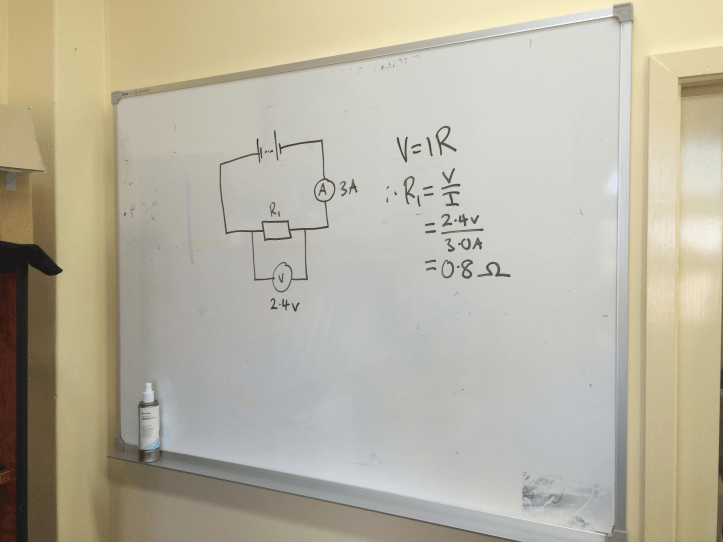 A 3A
R₁
V
2.4V
V=IR
∴R₁=V/I
=2.4V/3.0A
=0.8Ω